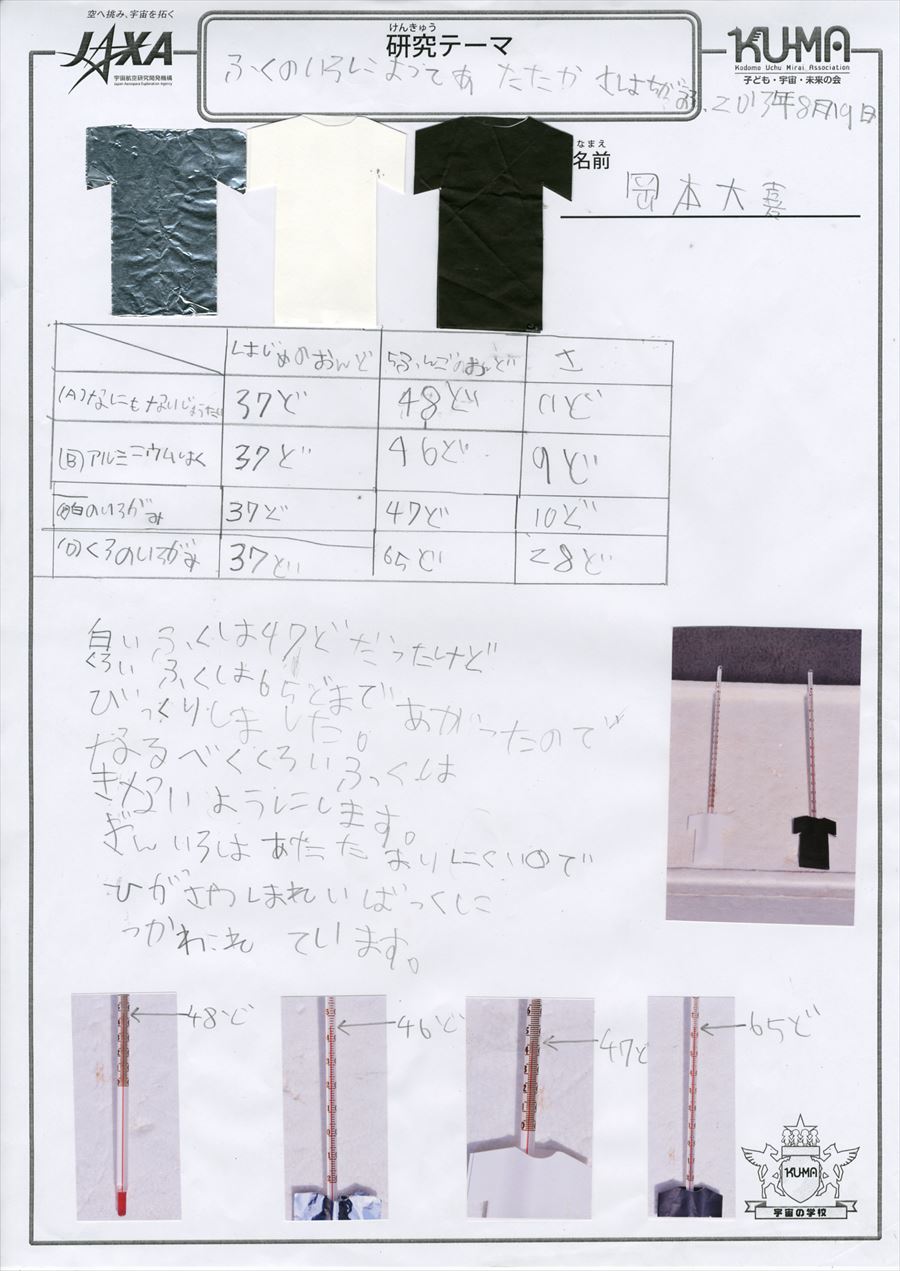 空へ挑み、宇宙を拓く
JAXA
宇宙航空研究開発機構
Japan Aerospace Exploration Agency
けんきゅう
研究テーマ
ふくのいろによってあたたかさはちがう
2013年8月19日
KU-MA
Kodomo Uchu Mirai Association
子ども・宇宙・未来の会
なまえ
名前
岡本大喜
はじめのおんど 5ふんごのおんど さ
(A)なにもないじょうたい 37ど 48ど 11ど
(B)アルミニウムはく 37ど 46ど 9ど
白のいろがみ 37ど 47ど 10ど
(D)くろのいろがみ 37ど 65ど 28ど
白いふくは47どだったけど
くろいふくは65どまで
あがったので
びっくりしました。
なるべくくろいふっくは
きないようにします。
ぎんいろはあたたまりにくいので
ひがさやほれいばっくに
つかわれています。
48ど
46ど
47ど
65ど
KU-MA
宇宙の学校